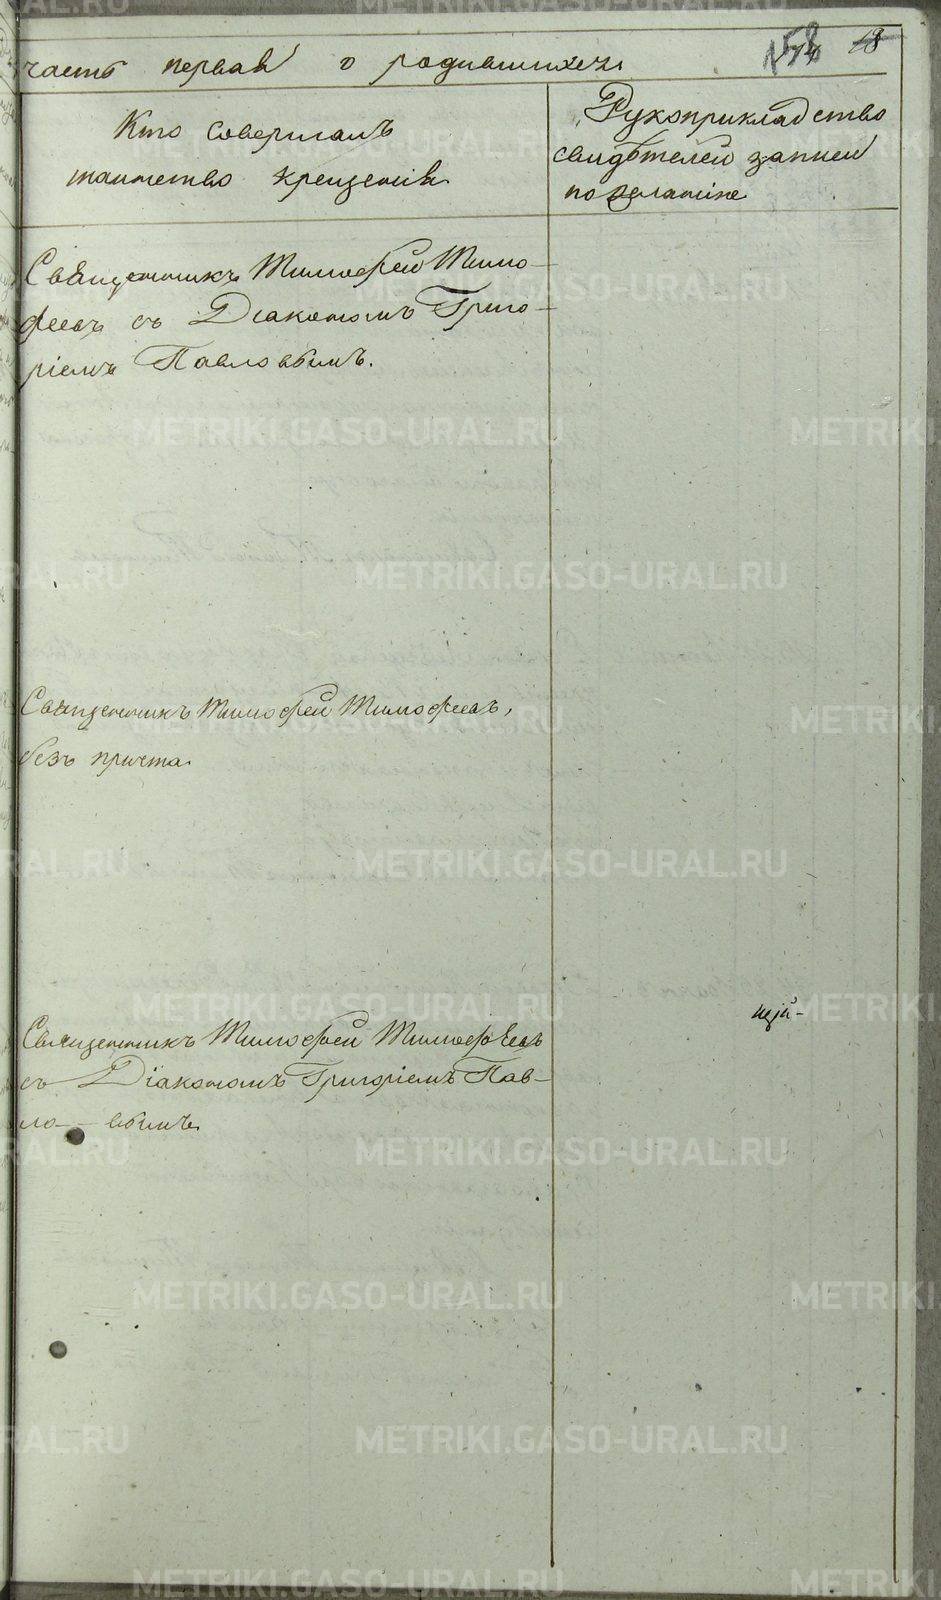 часть первая о родившихся
58
18
Кто совершалъ
таинство крещенія
Рукоприкладство
свидѣтелей записи
по желанію
Священникъ Тимофей Тимо-
феевъ съ Діакономъ Григо-
ріемъ Павловымъ.
Священникъ Тимофей Тимофеевъ,
безъ причта
Священникъ Тимофей Тимофѣевъ
съ Діакономъ Григоріемъ Пав-
ло- вымъ
METRIKI.GASO-URAL.RU